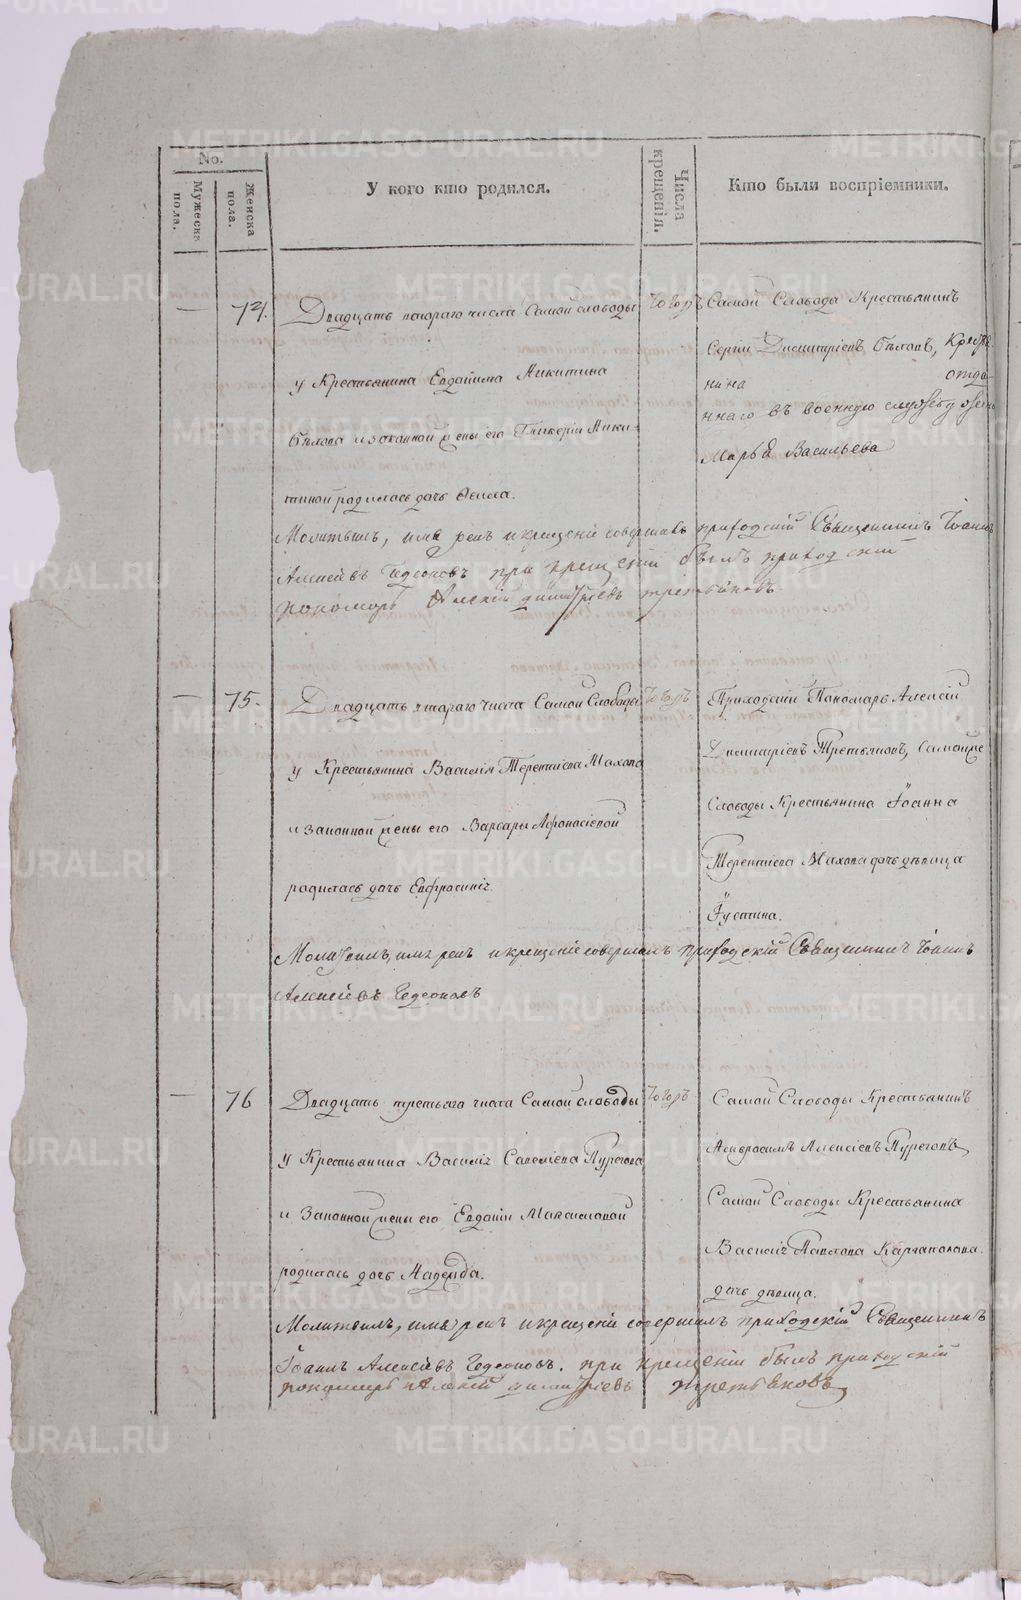 No.
Мужеска пола.
Женска пола.
У кого кто родился.
Числа крещенія.
Кто были воспріемники.
— 74.
Двадцать втораго числа Самой слободы
у Крестьянина Евдокима Никитина
Бѣлова и законной жены его Гликеріи Ники-
тиной родилась дочь
Того жъ
Самой Слободы Крестьянинъ
Сергій Димитріевъ Бѣловъ, Кресть
нина отда-
ннаго въ военную службу
Марѳа Васильева
Молитвилъ, имя рекъ и крещеніе совершилъ приходскій Священникъ Іоаннъ
Алексіевъ Гедеоновъ при крещеніи былъ приходскій
пономарь Алексій Димитріевъ Третьяковъ
— 75.
Двадцать втораго числа Самой Слободы
у Крестьянина Василія Терентіева Махова
и законной жены его Варвары Афонасіевой
родилась дочь Евфросинія.
Того жъ
Приходскій Пономарь Алексій
Димитріевъ Третьяковъ, Самой же
Слободы Крестьянина Іоанна
Терентіева Махова дочь дѣвица
Іустина.
Молитвилъ, имя рекъ и крещеніе совершилъ приходскій Священникъ Іоаннъ
Алексіевъ Гедеоновъ
— 76
Двадцать третьяго числа Самой слободы
у Крестьянина Василія Савеліева Пурегова
и Законной жены его Евдокіи Максимовой
родилась дочь Надежда.
Того жъ
Самой Слободы Крестьянинъ
Амвросимъ Алексіевъ Пуреговъ,
Самой Слободы Крестьянина
Василія Павлова Каргаполова
дочь дѣвица.
Молитвилъ, имя рекъ и крещеніе совершилъ приходскій Священникъ
Іоаннъ Алексіевъ Гедеоновъ. при крещеніи былъ приходскій
пономарь Алексій Димитріевъ Третьяковъ
METRIKI.GASO-URAL.RU